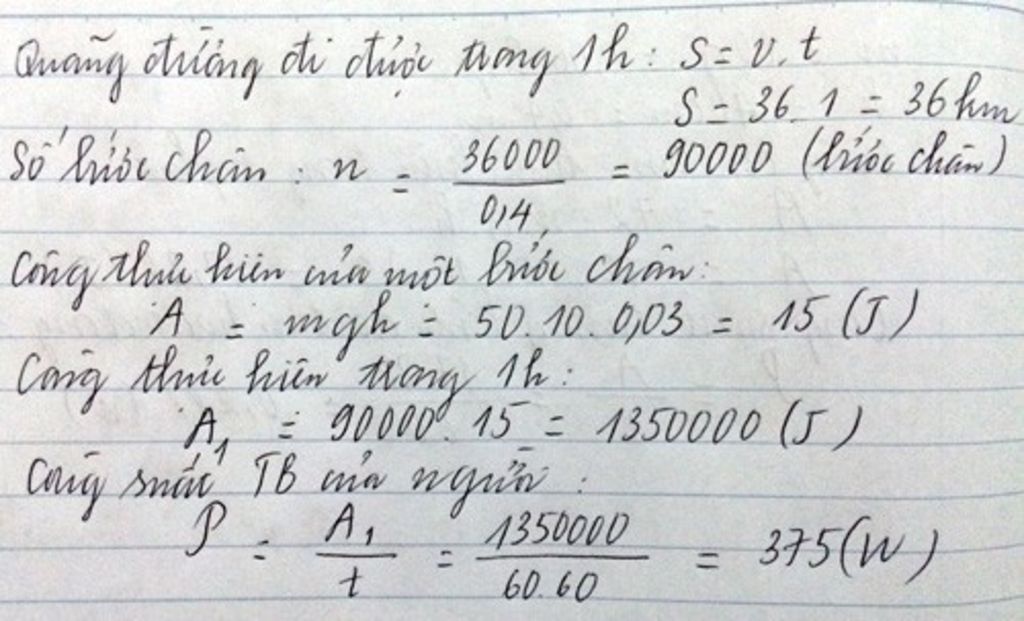 Quãng đường đi được trong 1h: S = v.t
S = 36.1 = 36km
Số bước chân : n = 36000 / 0,4 = 90000 (bước chân)
Công thực hiện của một bước chân:
A = mgh = 50.10.0,03 = 15 (J)
Công thực hiện trong 1h :
A₁ = 90000.15 = 1350000 (J)
Công suất TB của người :
P = A₁ / t = 1350000 / 60.60 = 375(W)